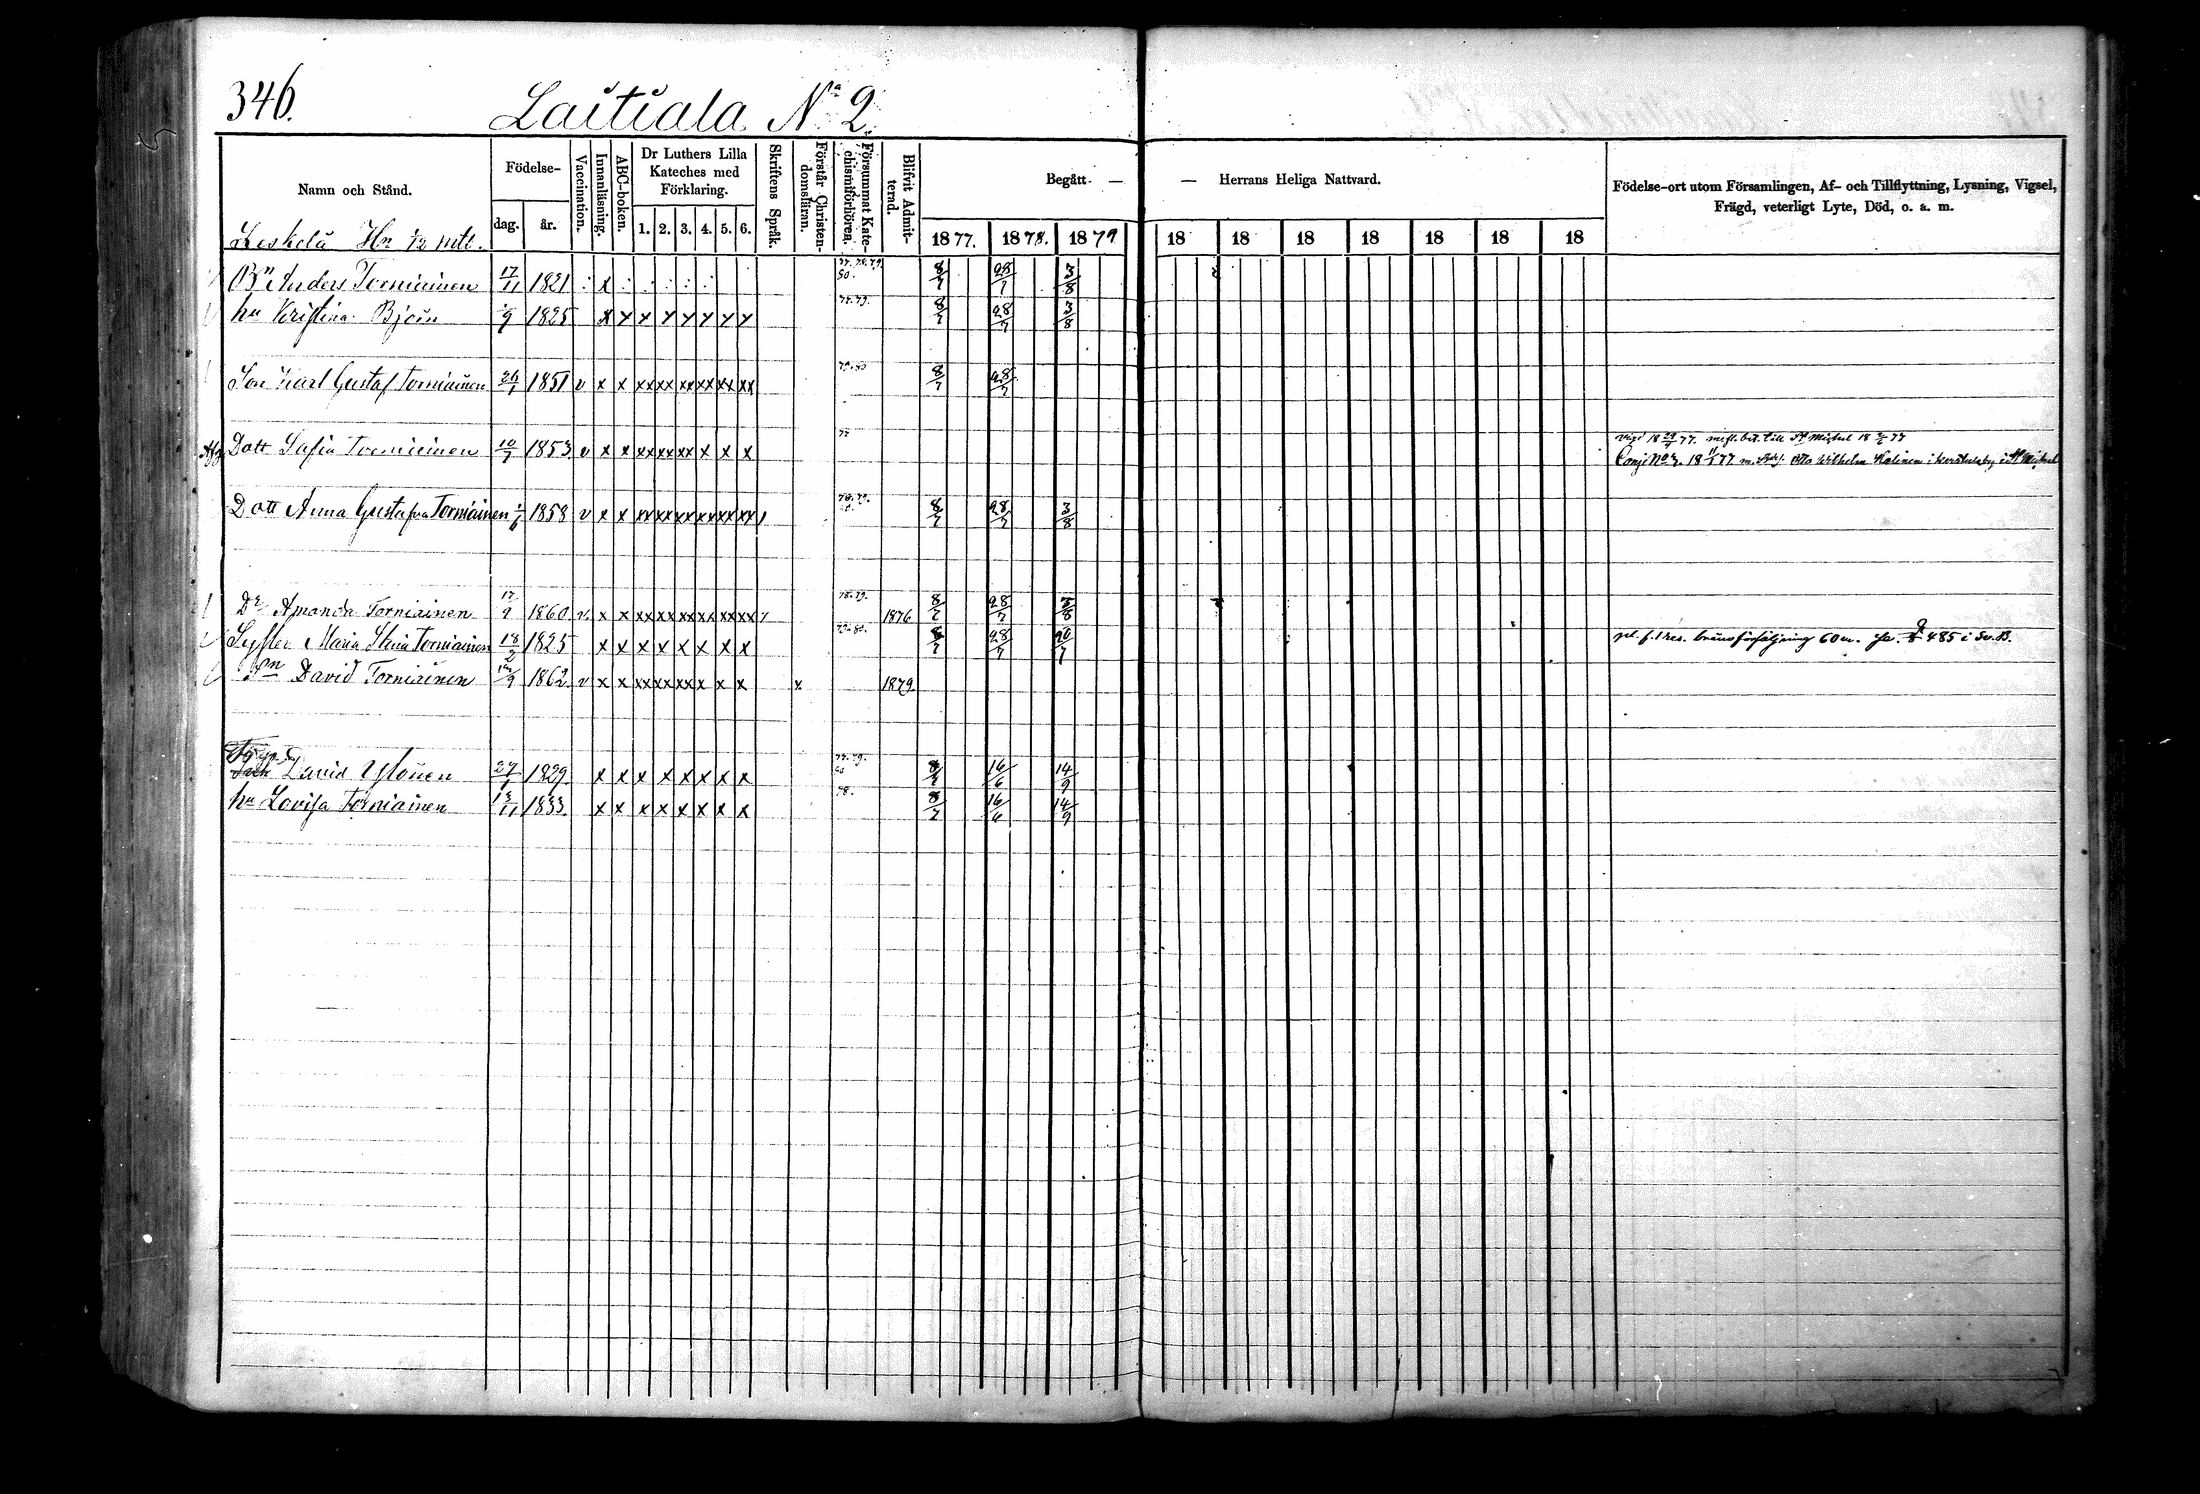 346.
Laitiala No 2.
Namn och Stånd.
Födelse-
dag.
år.
Vaccination.
Innanläsning.
ABC-boken.
Dr Luthers Lilla
Kateches med
Förklaring.
1. 2. 3. 4. 5. 6.
Skriftens Språk.
Förstår Christen-
domsläran.
Försummat Kate-
chismiförhören.
Blifvit Admit-
terad.
Begått — — Herrans Heliga Nattvard.
1877. 1878. 1879 18 18 18 18 18 18 18
Födelse-ort utom Församlingen, Af- och Tillflyttning, Lysning, Vigsel,
Frägd, veterligt Lyte, Död, o. a. m.
Leskelä Hn 1/2 mtl.
Bn Anders Torniainen 17/11 1821 x 8/7 28/7 3/8
hu Kristina Björn 1825 x x x x x x x x 78.79. 8/7 28/7 3/8
Son Karl Gustaf Torniainen 26/1 1851 v x x xx xx xx xx xx xx 79.80 8/7 28/7
Dott Sofia Torniainen 10/7 1853 v x x xx xx xx x x x
Dott Anna Gustafva Torniainen 1858 v x x xx xx xx xx xx xx 8/7 28/7 3/8
Dr Amanda Torniainen 17/9 1860 v. x x xx xx xx xx xx xx 78.79. 1876 8/7 28/7 3/8
Syster Maria Stina Torniainen 18/2 1825 x x x x x x x x 79.80. 8/7 28/7 20/7 pl. f. 1 res. bränsförsäljning 60 m. 485 i Sv.B.
Son David Torniainen 1862 v x x xx xx xx x x x x 1879
David Ylönen 27/1 1829. x x x x x x x x 8/7 16/6 14/9
hu Lovisa Torniainen 13/11 1833. x x x x x x x x 78. 8/7 16/6 14/9